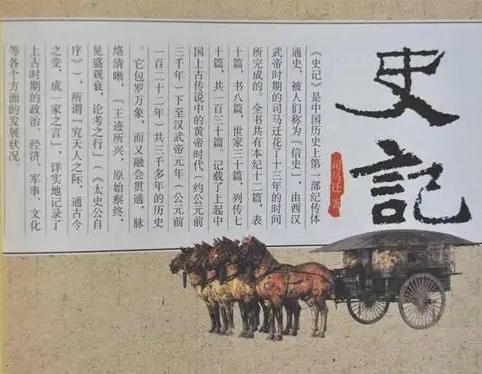 史記
司马迁 著
《史记》是中国历史上第一部纪传体
通史，被人们称为「信史」，由西汉
武帝时期的司马迁花了十三年的时间
所完成的。全书共有本纪十二篇，表
十篇，书八篇，世家三十篇，列传七
十篇，共一百三十篇，记载了上起中
国上古传说中的黄帝时代（约公元前
三千年）下至汉武帝元年（公元前
一百二十二年）共三千多年的历史
。它包罗万象，而又融会贯通，脉
络清晰，「王迹所兴，原始察终，
见盛观衰，论考之行」（《太史公自
序》），所谓「究天人之际，通古今
之变，成一家之言」，详实地记录了
上古时期的政治、经济、军事、文化
等各个方面的发展状况